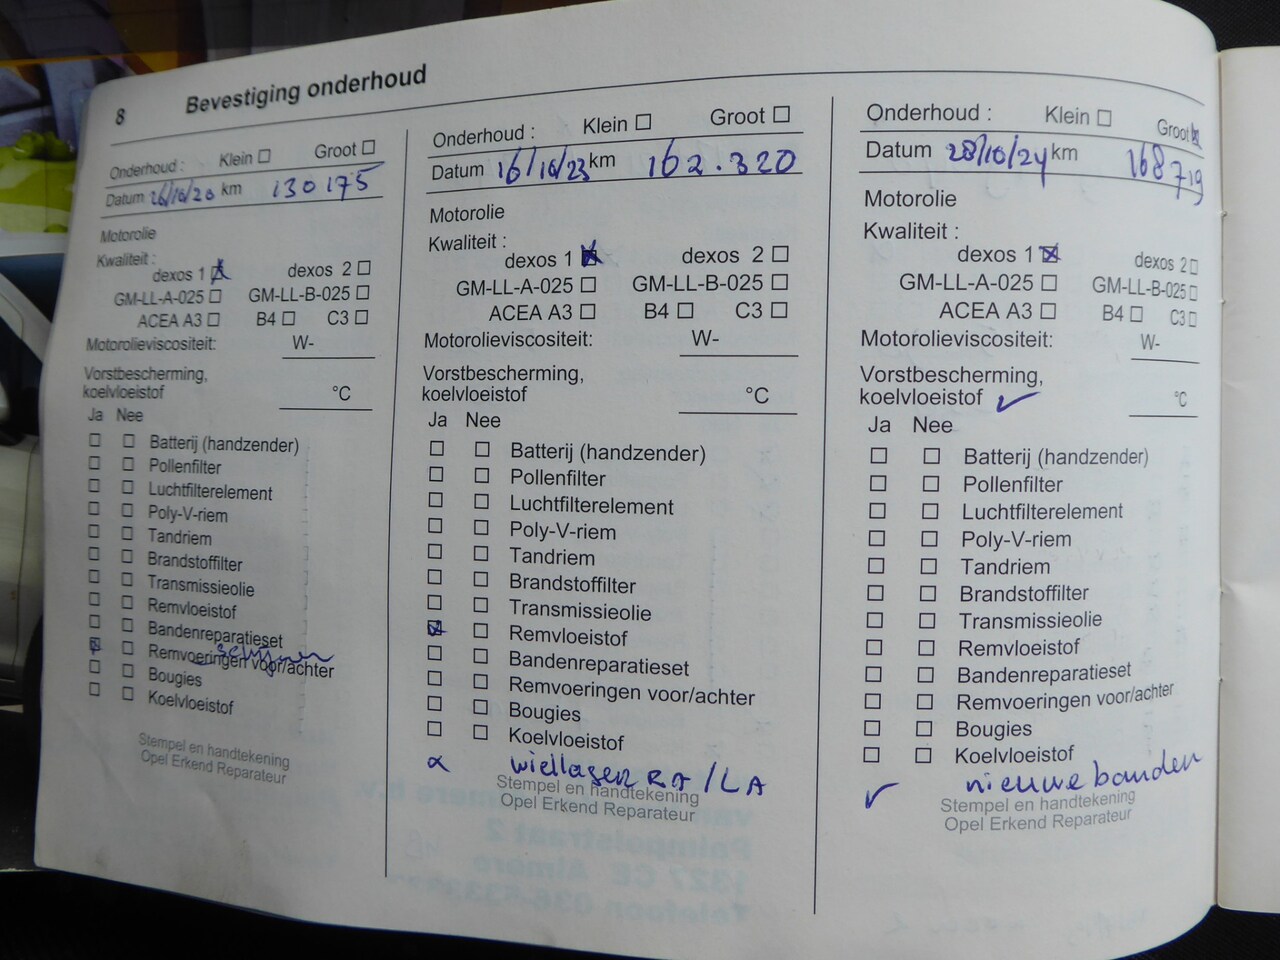 8 Bevestiging onderhoud
Onderhoud : Klein ☐ Groot ☐
Datum 26/10/20 km 130175
Motorolie
Kwaliteit :
dexos 1 ☒ dexos 2 ☐
GM-LL-A-025 ☐ GM-LL-B-025 ☐
ACEA A3 ☐ B4 ☐ C3 ☐
Motorolieviscositeit: W-
Vorstbescherming,
koelvloeistof °C
Ja Nee
☐ ☐ Batterij (handzender)
☐ ☐ Pollenfilter
☐ ☐ Luchtfilterelement
☐ ☐ Poly-V-riem
☐ ☐ Tandriem
☐ ☐ Brandstoffilter
☐ ☐ Transmissieolie
☐ ☐ Remvloeistof
☐ ☐ Bandenreparatieset
schijven
☒ ☐ Remvoeringen voor/achter
☐ ☐ Bougies
☐ ☐ Koelvloeistof
Stempel en handtekening
Opel Erkend Reparateur
Onderhoud : Klein ☐ Groot ☐
Datum 16/10/23 km 162.320
Motorolie
Kwaliteit :
dexos 1 ☒ dexos 2 ☐
GM-LL-A-025 ☐ GM-LL-B-025 ☐
ACEA A3 ☐ B4 ☐ C3 ☐
Motorolieviscositeit: W-
Vorstbescherming,
koelvloeistof °C
Ja Nee
☐ ☐ Batterij (handzender)
☐ ☐ Pollenfilter
☐ ☐ Luchtfilterelement
☐ ☐ Poly-V-riem
☐ ☐ Tandriem
☐ ☐ Brandstoffilter
☐ ☐ Transmissieolie
☒ ☐ Remvloeistof
☐ ☐ Bandenreparatieset
☐ ☐ Remvoeringen voor/achter
☐ ☐ Bougies
☐ ☐ Koelvloeistof
wiellager RA/LA
Stempel en handtekening
Opel Erkend Reparateur
Onderhoud : Klein ☐ Groot ☒
Datum 28/10/24 km 168719
Motorolie
Kwaliteit :
dexos 1 ☒ dexos 2 ☐
GM-LL-A-025 ☐ GM-LL-B-025 ☐
ACEA A3 ☐ B4 ☐ C3 ☐
Motorolieviscositeit: W-
Vorstbescherming,
koelvloeistof ✓ °C
Ja Nee
☐ ☐ Batterij (handzender)
☐ ☐ Pollenfilter
☐ ☐ Luchtfilterelement
☐ ☐ Poly-V-riem
☐ ☐ Tandriem
☐ ☐ Brandstoffilter
☐ ☐ Transmissieolie
☐ ☐ Remvloeistof
☐ ☐ Bandenreparatieset
☐ ☐ Remvoeringen voor/achter
☐ ☐ Bougies
☐ ☐ Koelvloeistof
✓ nieuwe banden
Stempel en handtekening
Opel Erkend Reparateur